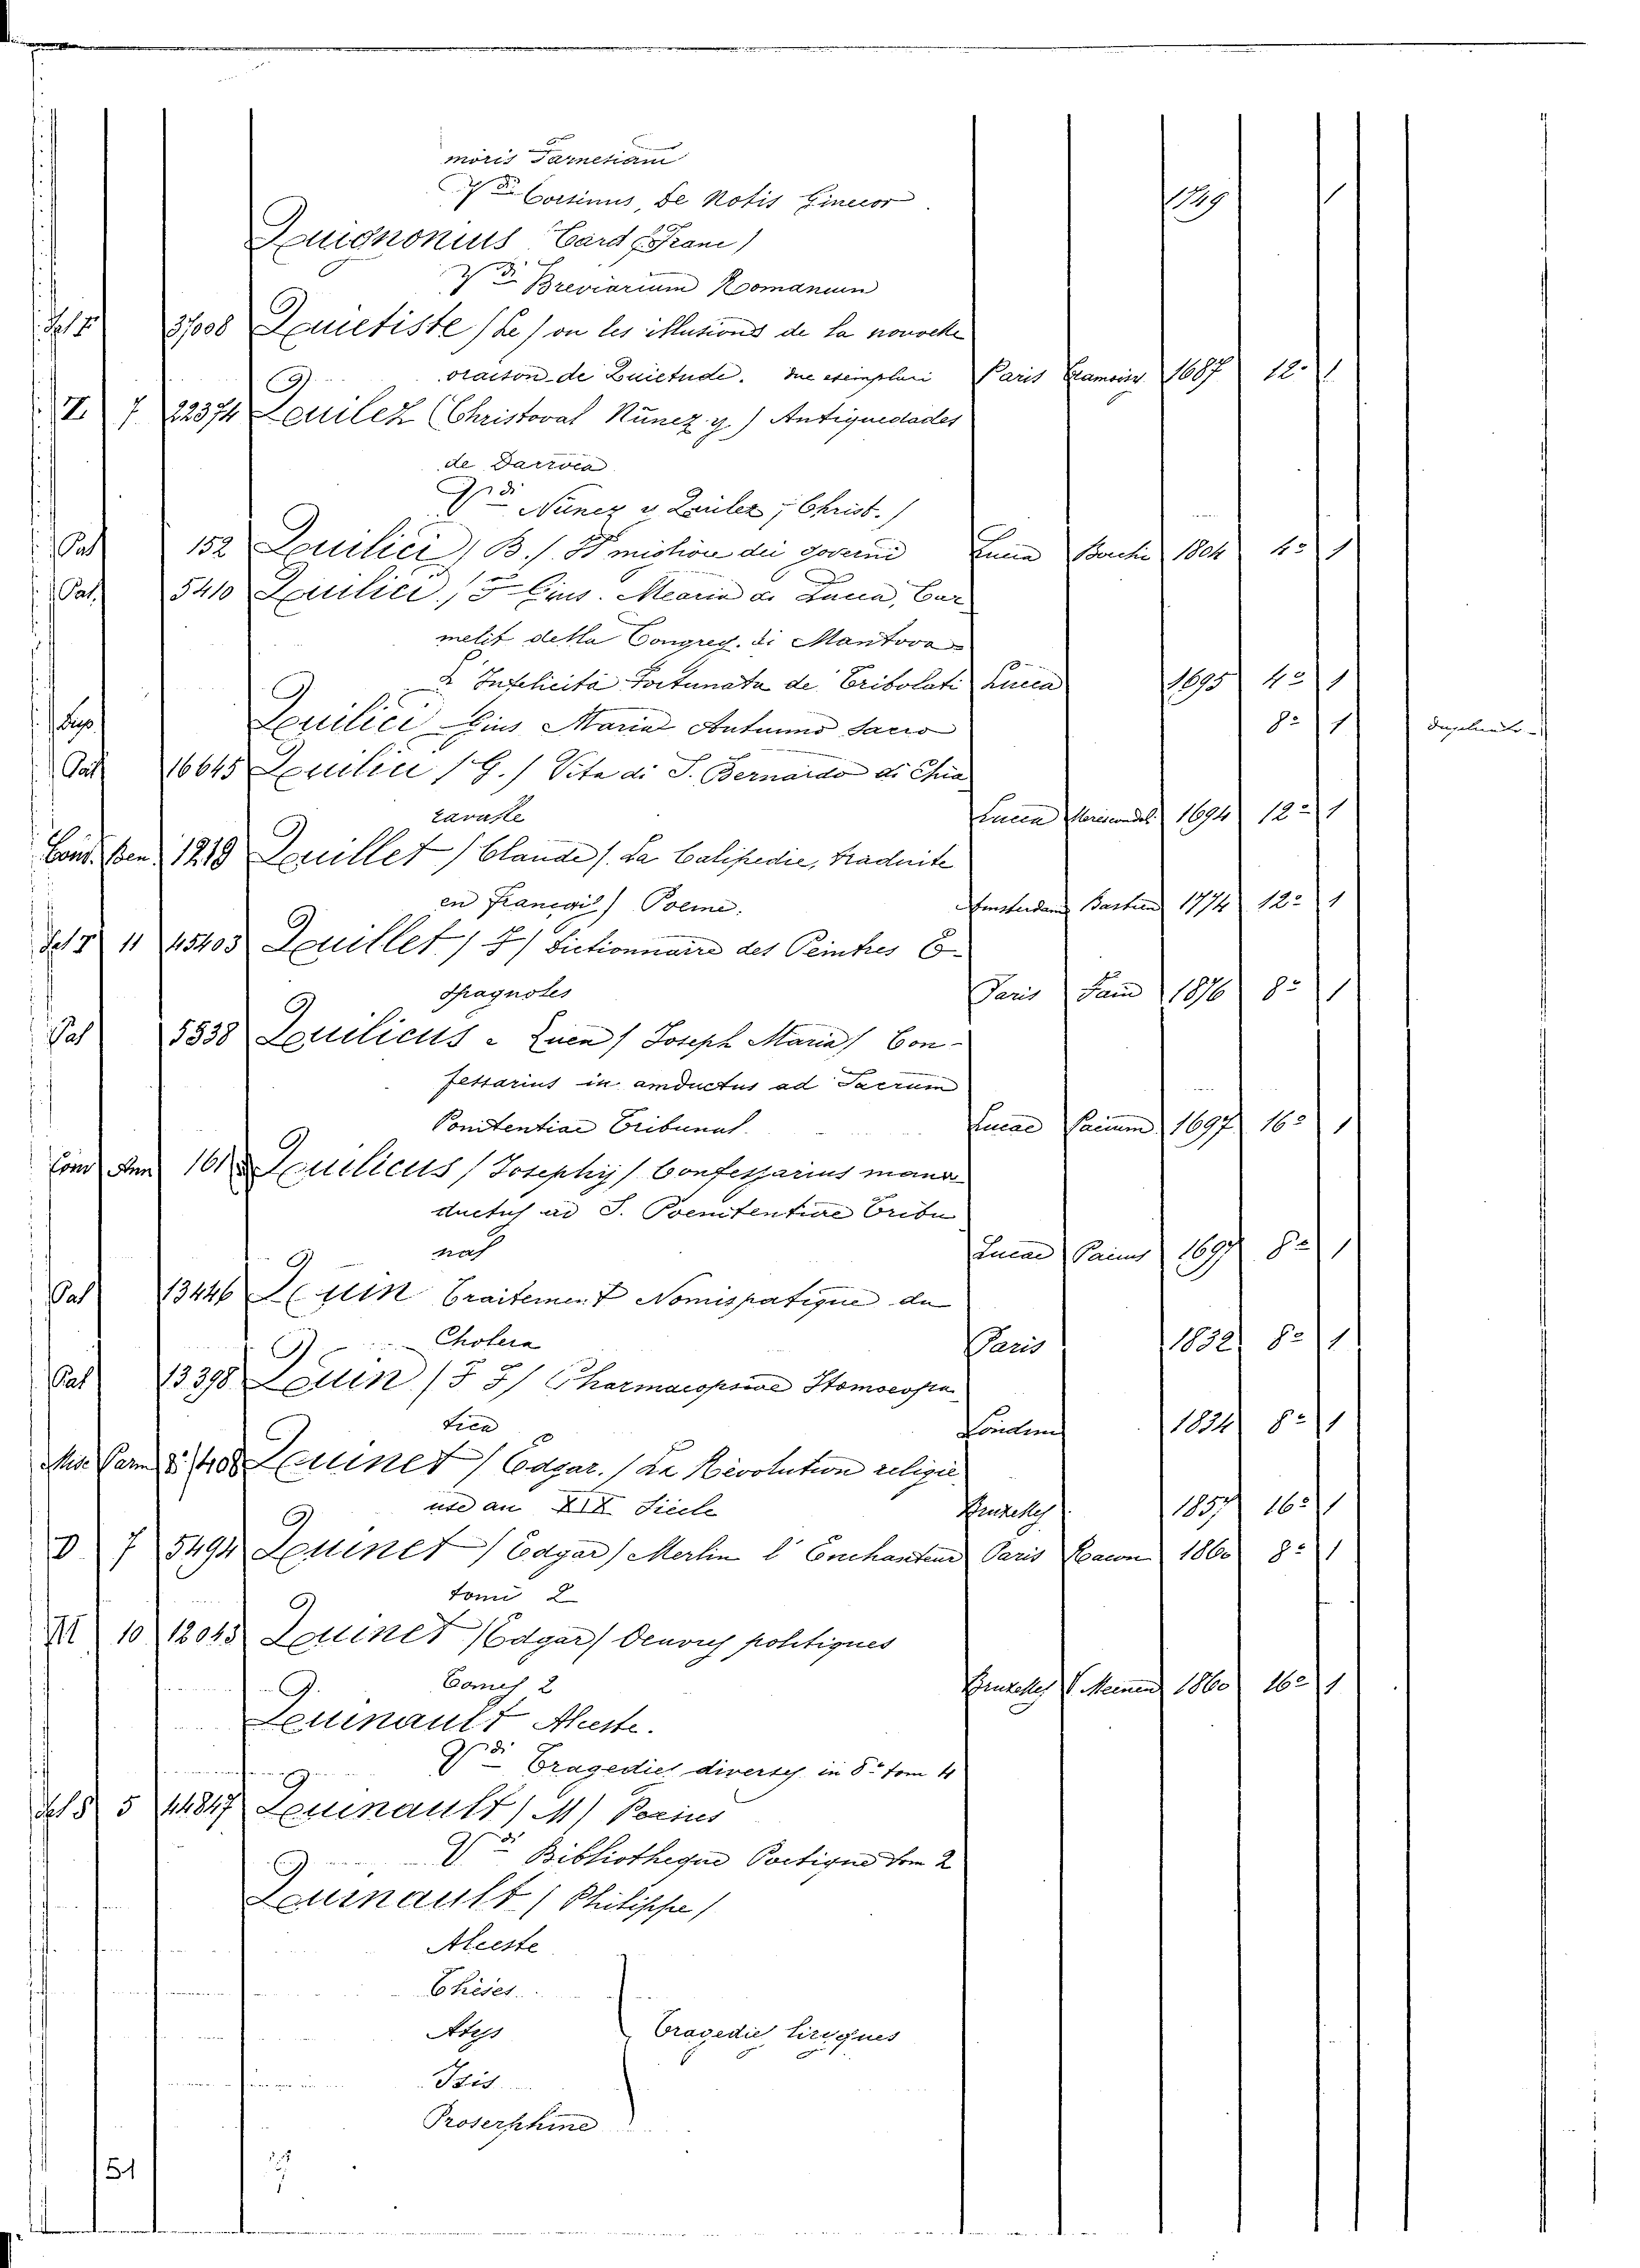 moris Farnesiani
Vdi Corsinus, de Notis Ginecor
1749 1
Quignonius Card (Frani)
Vdi Breviarium Romanum
37008 Quietiste (Le) ou les illusions de la nouvelle
oraison de Quietude. due esemplari Paris 1687 12. 1
7 22374 Quilez (Christoval Nunez y) Antiquedades
de Darroca
Vdi Nunez y Quilez (Christ.)
Pal 152 Quilici (B.) dei governi Lucia 1804 4º 1
Pal. 5410 Quilici, Gius. Maria da Lucca, Car
melit della Congreg. di Mantova
L' Infelicità Fortunata de Tribolati Lucca 1695 4º 1
Quilici Gius Maria Autunno Sacro 8º 1
Pal 16645 Quilici (G.) Vita di S. Bernardo di Chia
ravalle Lucca 1694 12º 1
1219 Quillet (Claude). La Calipedie, traduite
en Francais) Poeme. Amsterdam Bastien 1774 12º 1
11 45403 Quillet (F) Dictionnaire des Peintres E
spagnoles Paris Fain 1876 8º 1
Pal 5538 Quilicus a Luca (Joseph Maria) Con-
fessarius in amductus ad Sacrum
Ponitentiae Tribunal. Lucae 1697 16º 1
Quilicus (Josephi) Confessarius mana
ductus ad S. Poenitentiae Tribu
nal Lucae 1697 8º 1
Pal 13446 Quin Traitement Nomispatique du
Cholera Paris 1832 8º 1
Pal 13398 Quin (F F) Pharmacopoiae Homoeopa
tica London 1834 8º 1
Quinet (Edgar.) La Révolution religie
use au XIX Siecle Bruxelles 1857 16º 1
D 7 5494 Quinet (Edgar) Merlin l'Enchanteur Paris 1860 8º 1
tomi 2
10 12043 Quinet (Edgar) Oeuvres politiques
Tomes 2 Bruxelles 1860 16º 1
Quinault Alceste.
Vdi Tragedies diverses in 8º tom 4
5 44847 Quinault (M)
Vdi Bibliotheque Poetique tom 2
Quinault (Philippe)
Alceste
Théses
Atys Tragedies liriques
Isis
Proserphine
51